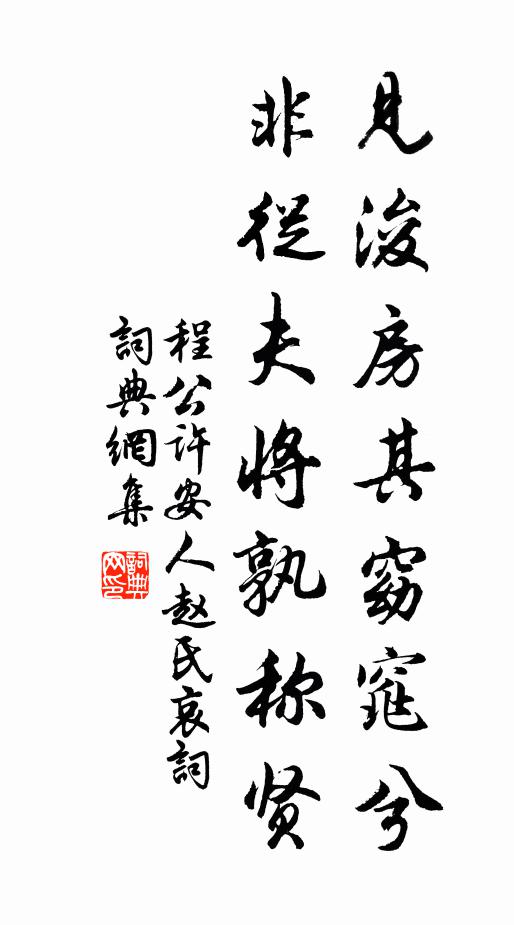 見浚房其窈窕兮
非從夫將孰称贤
程公许安人赵氏哀詞
詞典網集
詞典
网印